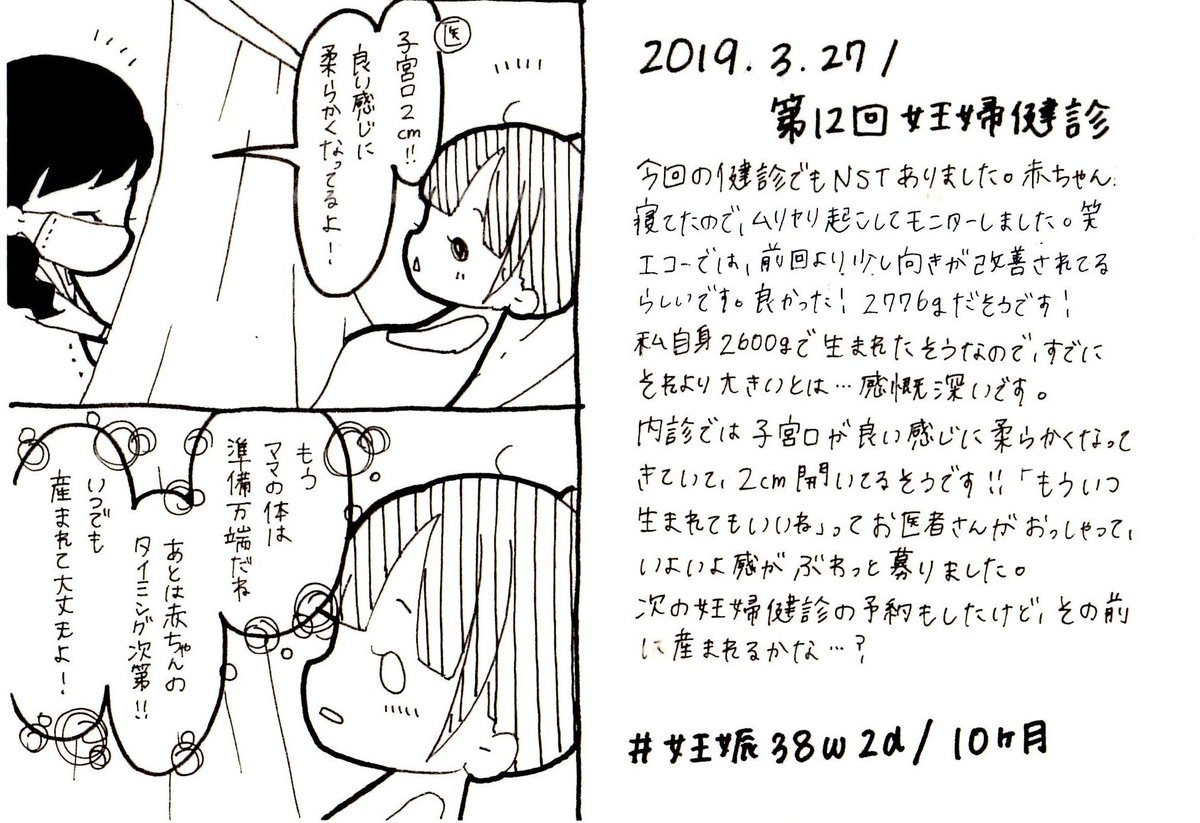 医
子宮口2cm!!
良い感じに
柔らかくなってるよ!
もう
ママの体は
準備万端だね
あとは赤ちゃんの
タイミング次第!!
いつでも
産まれて大丈夫よ!
2019.3.27/
第12回妊婦健診
今回の健診でもNSTありました。赤ちゃん
寝てたので、ムリヤリ起こしてモニターしました。笑
エコーでは、前回より少し向きが改善されてる
らしいです。良かった!2776gだそうです!
私自身2600gで生まれたそうなので、すでに
それより大きいとは…感慨深いです。
内診では子宮口が良い感じに柔らかくなって
きていて、2cm開いてるそうです!!「もういつ
生まれてもいいね」ってお医者さんがおっしゃって、
いよいよ感がぶわっと募りました。
次の妊婦健診の予約もしたけど、その前
に産まれるかな…?
#妊娠38w2d/10ヶ月